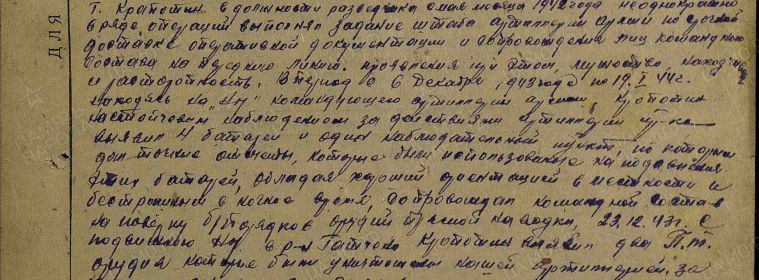 ДЛЯ
Т. Кропотин в должности разведчика с мая месяца 1942 года неоднократно
в ряде операций выполнял задание штаба артиллерии армии по срочной
доставке оперативной документации и сопровождения лиц командного
состава на переднюю линию, проявляя при этом, мужество, находчивость
и расторопность. В период с 6 декабря 1943 года по 19.I.44 г.
находясь на "НП" командующего артиллерии армии, Кропотин
настойчивом наблюдением за действиями артиллерии пр-ка
выявил 4 батареи и один наблюдательный пункт, по которым
дал точные отметы, которые были использование на подавления
этих батарей, обладая хорошей ориентацией в местности и
бесстрашный в ночное время, сопровождал командной состав
на поверку б/порядков орудий прямой наводки, 23.12.43 г. с
подвижного НП в р-н Кропотин выявил два П.Т.
орудия которые были уничтожены нашей артиллерией. За